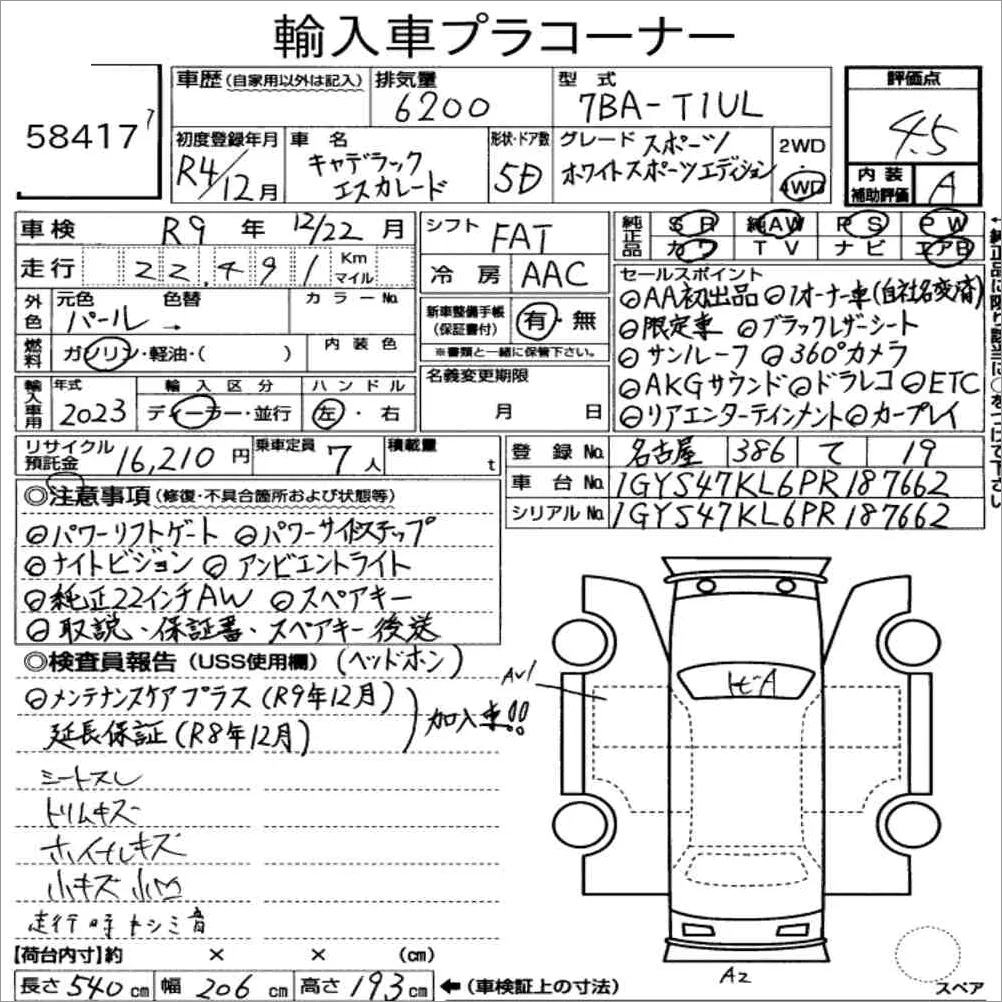 輸入車プラコーナー
58417 7
車歴(自家用以外は記入) 排気量 6200 型式 7BA-T1UL 評価点 4.5
初度登録年月 R4/12月 車名 キャデラック エスカレード 形状・ドア数 5D グレード スポーツ ホワイトスポーツエディション 2WD 4WD
内装補助評価 A
車検 R9年 12/22月 シフト FAT 純正品 SR 純AW PS PW
走行 22,491 Km マイル 冷房 AAC カワ TV ナビ エアB
外色 元色 パール → 色替 カラーNo.
新車整備手帳(保証書付) 有・無
※書類と一緒に保管下さい。
燃料 ガソリン・軽油・( ) 内装色
輸入車用 年式 2023 輸入区分 ディーラー・並行 ハンドル 左・右
名義変更期限 月 日
セールスポイント
AA初出品 1オーナー車(自社名変済)
限定車 ブラックレザーシート
サンルーフ 360°カメラ
AKGサウンド ドラレコ ETC
リアエンターテインメント カープレイ
リサイクル預託金 16,210円 乗車定員 7人 積載量 t
登録No. 名古屋 386 て 19
車台No. 1GYS47KL6PR187662
シリアルNo. 1GYS47KL6PR187662
◎注意事項(修復・不具合箇所および状態等)
パワーリフトゲート パワーサイドステップ
ナイトビジョン アンビエントライト
純正22インチAW スペアキー
取説・保証書・スペアキー後送
◎検査員報告(USS使用欄) (ヘッドホン)
メンテナンスケアプラス(R9年12月)
延長保証(R8年12月)
加入車!!
シートスレ
トリムキズ
ホイールキズ
小キズ 小凹
走行時 トシミ音
AW1
トビA
A2
【荷台内寸】約 × × (cm)
長さ 540cm 幅 206cm 高さ 193cm ←(車検証上の寸法)
スペア